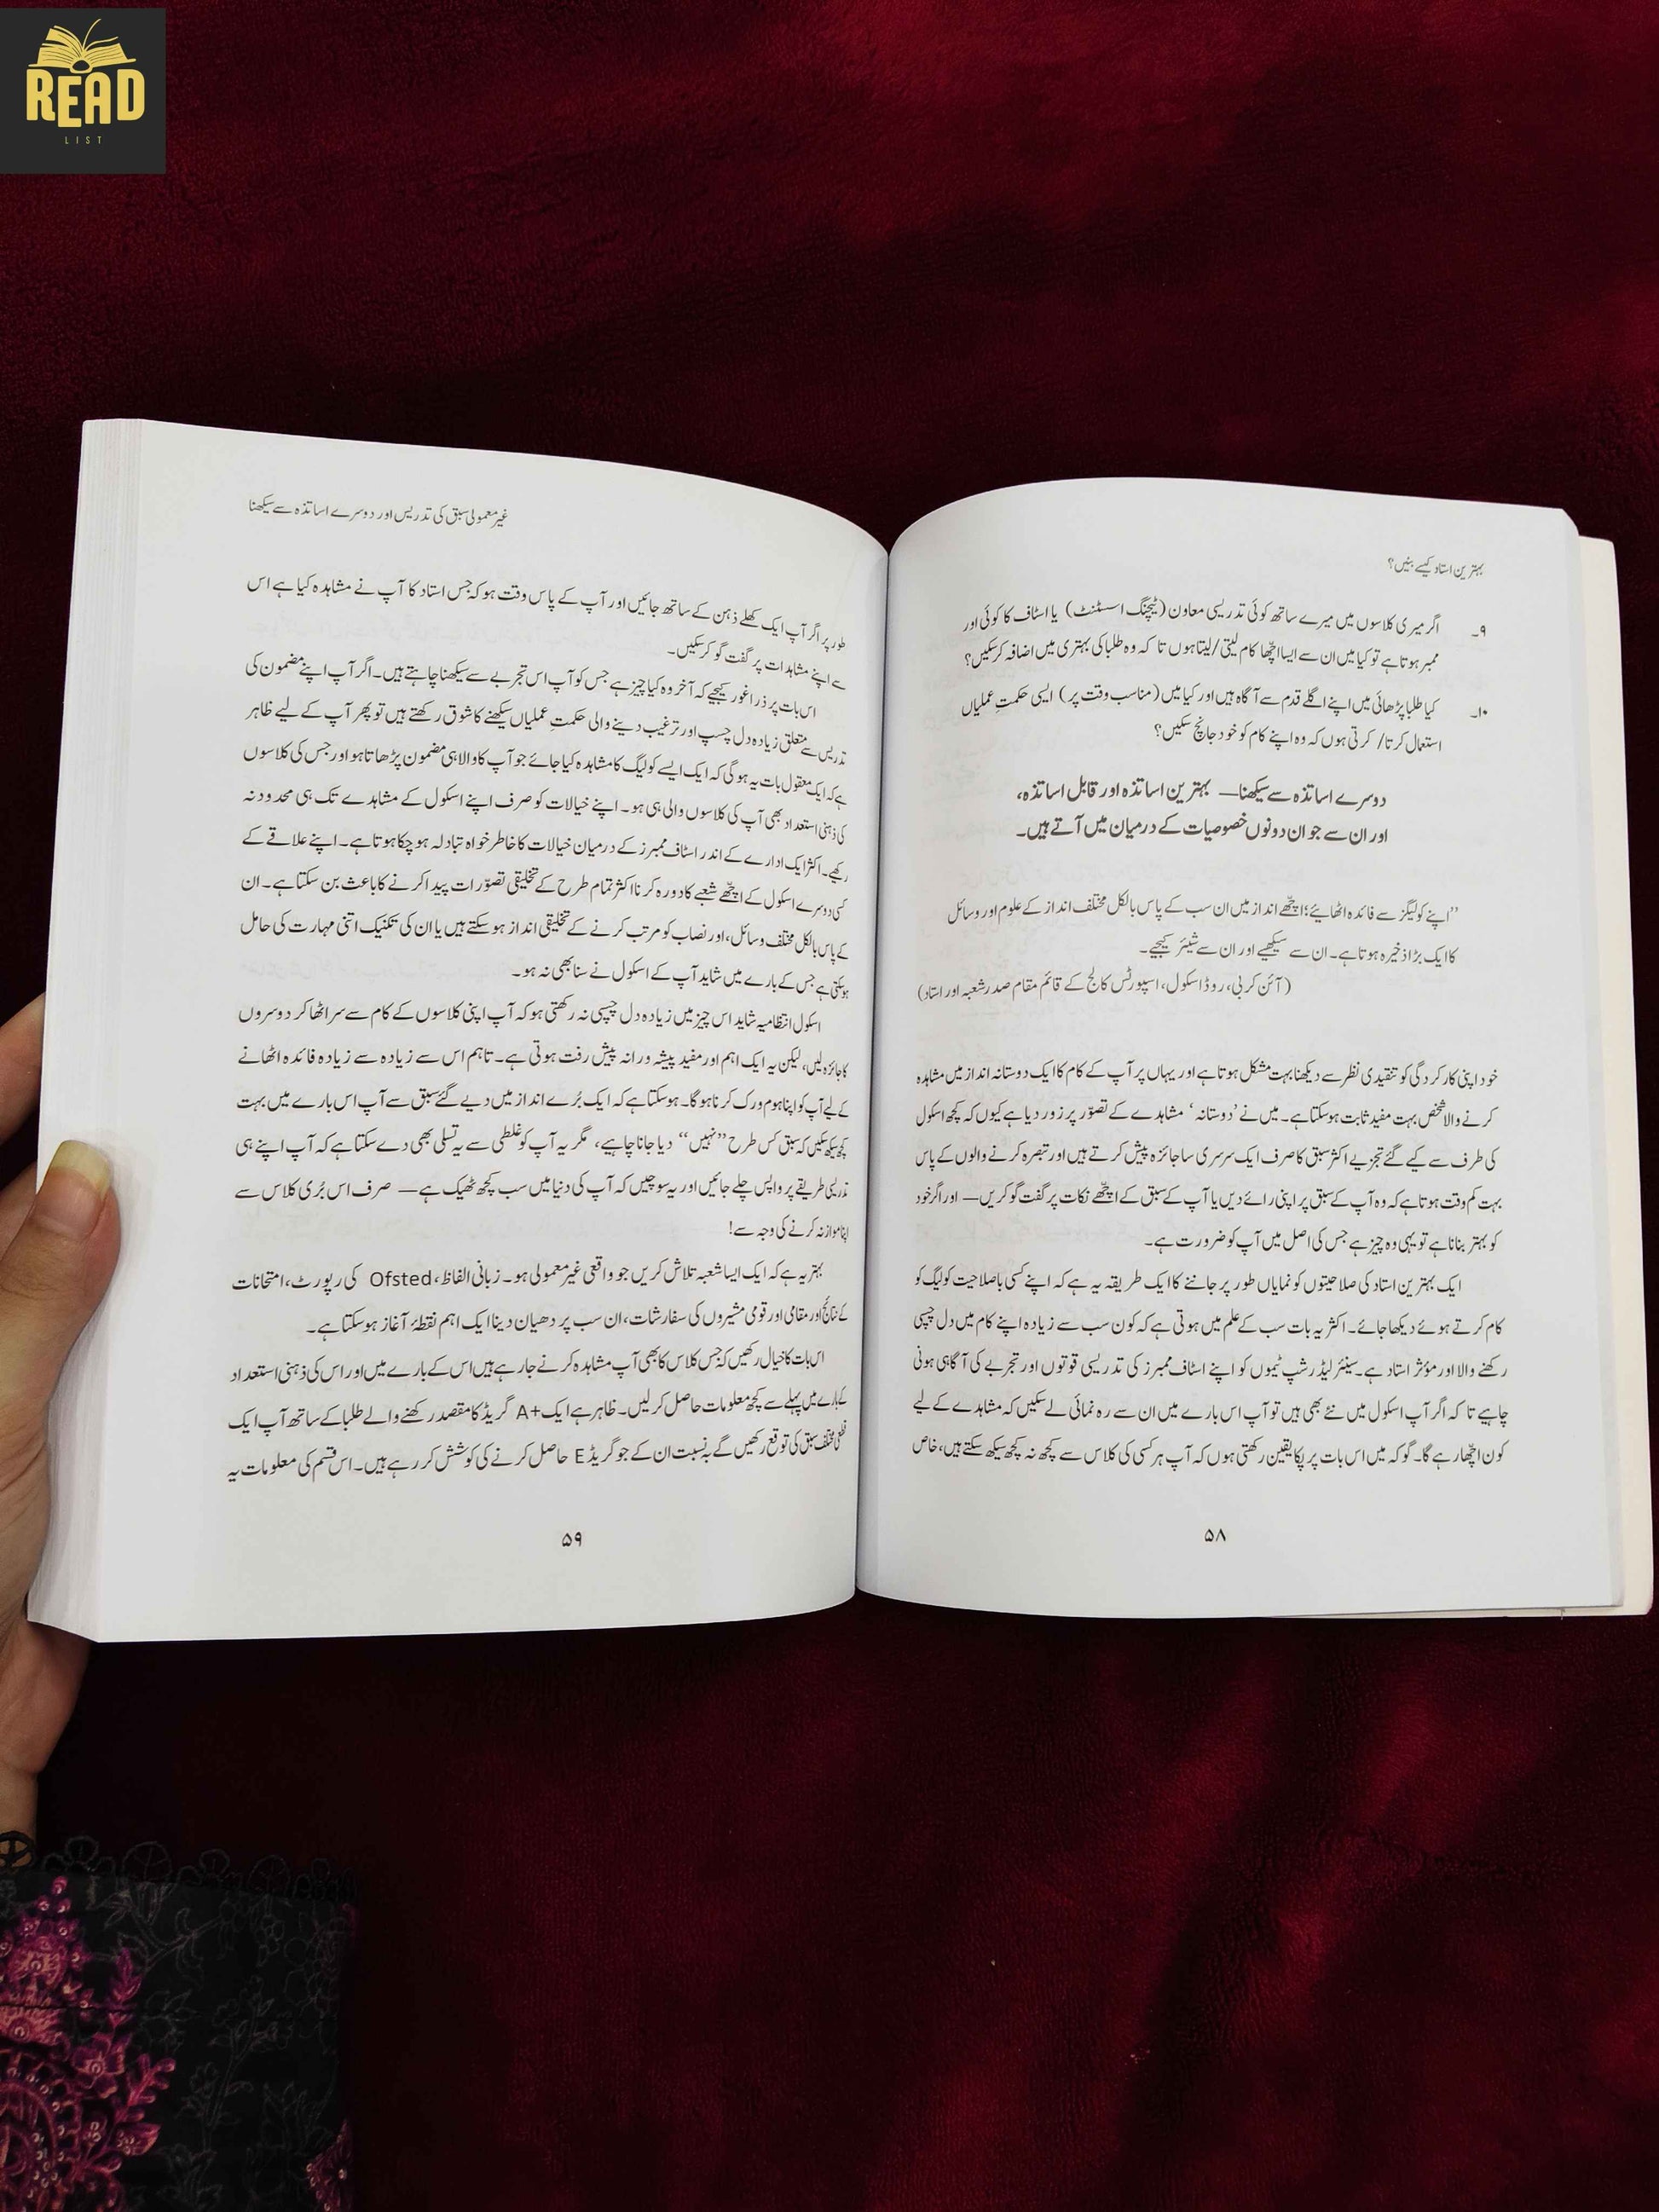 READ
LIST
بہترین استاد کیسے بنیں؟
۹۔ اگر میری کلاسوں میں میرے ساتھ کوئی تدریسی معاون (ٹیچنگ اسسٹنٹ) یا اسٹاف کا کوئی اور
ممبر ہوتا ہے تو کیا میں ان سے ایسا اچھا کام لیتی/لیتا ہوں تا کہ وہ طلبا کی بہتری میں اضافہ کر سکیں؟
۱۰۔ کیا طلبا پڑھائی میں اپنے اگلے قدم سے آگاہ ہیں اور کیا میں (مناسب وقت پر) ایسی حکمتِ عملیاں
استعمال کرتا/ کرتی ہوں کہ وہ اپنے کام کو خود جانچ سکیں؟
دوسرے اساتذہ سے سیکھنا— بہترین اساتذہ اور قابل اساتذہ،
اور ان سے جو ان دونوں خصوصیات کے درمیان میں آتے ہیں۔
”اپنے کولیگز سے فائدہ اٹھایئے؛ اچھّے انداز میں ان سب کے پاس بالکل مختلف انداز کے علوم اور وسائل
کا ایک بڑا ذخیرہ ہوتا ہے۔ ان سے سیکھیے اور ان سے شیئر کیجیے۔
(آئن کربی، روڈ اسکول، اسپورٹس کالج کے قائم مقام صدر شعبہ اور استاد)
خود اپنی کارکردگی کو تنقیدی نظر سے دیکھنا بہت مشکل ہوتا ہے اور یہاں پر آپ کے کام کا ایک دوستانہ انداز میں مشاہدہ
کرنے والا شخص بہت مفید ثابت ہو سکتا ہے۔ میں نے ’دوستانہ‘ مشاہدے کے تصوّر پر زور دیا ہے کیوں کہ کچھ اسکول
کی طرف سے کیے گئے تجزیے اکثر سبق کا صرف ایک سرسری سا جائزہ پیش کرتے ہیں اور تبصرہ کرنے والوں کے پاس
بہت کم وقت ہوتا ہے کہ وہ آپ کے سبق پر اپنی رائے دیں یا آپ کے سبق کے اچھّے نکات پر گفت گو کریں— اور اگر خود
کو بہتر بنانا ہے تو یہی وہ چیز ہے جس کی اصل میں آپ کو ضرورت ہے۔
ایک بہترین استاد کی صلاحیتوں کو نمایاں طور پر جاننے کا ایک طریقہ یہ ہے کہ اپنے کسی باصلاحیت کولیگ کو
کام کرتے ہوئے دیکھا جائے۔ اکثر یہ بات سب کے علم میں ہوتی ہے کہ کون سب سے زیادہ اپنے کام میں دل چسپی
رکھنے والا اور مؤثر استاد ہے۔ سینئر لیڈرشپ ٹیموں کو اپنے اسٹاف ممبرز کی تدریسی قوتوں اور تجربے کی آگاہی ہونی
چاہیے تا کہ اگر آپ اسکول میں نئے بھی ہیں تو آپ اس بارے میں ان سے رہ نمائی لے سکیں کہ مشاہدے کے لیے
کون اچھّا رہے گا۔ گو کہ میں اس بات پر پکا یقین رکھتی ہوں کہ آپ ہر کسی کی کلاس سے کچھ نہ کچھ سیکھ سکتے ہیں، خاص
۵۸
غیر معمولی سبق کی تدریس اور دوسرے اساتذہ سے سیکھنا
طور پر اگر آپ ایک کھلے ذہن کے ساتھ جائیں اور آپ کے پاس وقت ہو کہ جس استاد کا آپ نے مشاہدہ کیا ہے اس
سے اپنے مشاہدات پر گفت گو کر سکیں۔
اس بات پر ذرا غور کیجیے کہ آخر وہ کیا چیز ہے جس کو آپ اس تجربے سے سیکھنا چاہتے ہیں۔ اگر آپ اپنے مضمون کی
تدریس سے متعلق زیادہ دل چسپ اور ترغیب دینے والی حکمتِ عملیاں سیکھنے کا شوق رکھتے ہیں تو پھر آپ کے لیے ظاہر
ہے کہ ایک معقول بات یہ ہو گی کہ ایک ایسے کولیگ کا مشاہدہ کیا جائے جو آپ کا والا ہی مضمون پڑھاتا ہو اور جس کی کلاسوں
کی ذہنی استعداد بھی آپ کی کلاسوں والی ہی ہو۔ اپنے خیالات کو صرف اپنے اسکول کے مشاہدے تک ہی محدود نہ
رکھیے۔ اکثر ایک ادارے کے اندر اسٹاف ممبرز کے درمیان خیالات کا خاطر خواہ تبادلہ ہو چکا ہوتا ہے۔ اپنے علاقے کے
کسی دوسرے اسکول کے اچھّے شعبے کا دورہ کرنا اکثر تمام طرح کے تخلیقی تصوّرات پیدا کرنے کا باعث بن سکتا ہے۔ ان
کے پاس بالکل مختلف وسائل، اور نصاب کو مرتب کرنے کے تخلیقی انداز ہو سکتے ہیں یا ان کی تکنیک اتنی مہارت کی حامل
ہو سکتی ہے جس کے بارے میں شاید آپ کے اسکول نے سنا بھی نہ ہو۔
اسکول انتظامیہ شاید اس چیز میں زیادہ دل چسپی نہ رکھتی ہو کہ آپ اپنی کلاسوں کے کام سے سر اٹھا کر دوسروں
کا جائزہ لیں، لیکن یہ ایک اہم اور مفید پیشہ ورانہ پیش رفت ہوتی ہے۔ تاہم اس سے زیادہ سے زیادہ فائدہ اٹھانے
کے لیے آپ کو اپنا ہوم ورک کرنا ہو گا۔ ہو سکتا ہے کہ ایک بُرے انداز میں دیے گئے سبق سے آپ اس بارے میں بہت
کچھ سیکھ سکیں کہ سبق کس طرح ”نہیں“ دیا جانا چاہیے، مگر یہ آپ کو غلطی سے یہ تسلی بھی دے سکتا ہے کہ آپ اپنے ہی
تدریسی طریقے پر واپس چلے جائیں اور یہ سوچیں کہ آپ کی دنیا میں سب کچھ ٹھیک ہے— صرف اس بُری کلاس سے
اپنا موازنہ کرنے کی وجہ سے!
بہتر یہ ہے کہ ایک ایسا شعبہ تلاش کریں جو واقعی غیر معمولی ہو۔ زبانی الفاظ، Ofsted کی رپورٹ، امتحانات
کے نتائج اور مقامی اور قومی مشیروں کی سفارشات، ان سب پر دھیان دینا ایک اہم نقطۂ آغاز ہو سکتا ہے۔
اس بات کا خیال رکھیں کہ جس کلاس کا بھی آپ مشاہدہ کرنے جا رہے ہیں اس کے بارے میں اور اس کی ذہنی استعداد
کے بارے میں پہلے سے کچھ معلومات حاصل کر لیں۔ ظاہر ہے ایک A+ گریڈ کا مقصد رکھنے والے طلبا کے ساتھ آپ ایک
مختلف سبق کی توقع رکھیں گے بہ نسبت ان کے جو گریڈ E حاصل کرنے کی کوشش کر رہے ہیں۔ اس قسم کی معلومات یہ
۵۹